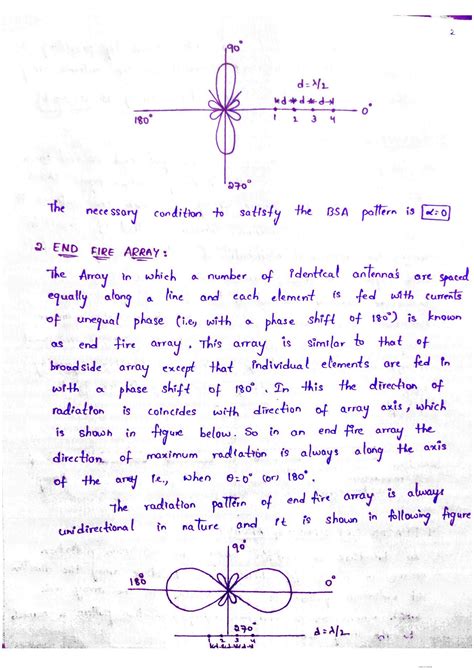 2
90°
d = λ/2
d d d
180°
0°
1 2 3 4
270°
The necessary condition to satisfy the BSA pattern is α=0
2. END FIRE ARRAY:
The Array in which a number of identical antenna's are spaced
equally along a line and each element is fed with currents
of unequal phase (i.e, with a phase shift of 180°) is known
as end fire array. This array is similar to that of
broadside array except that individual elements are fed in
with a phase shift of 180°. In this the direction of
radiation is coincides with direction of array axis, which
is shown in figure below. So in an end fire array the
direction of maximum radiation is always along the axis
of the array i.e., when θ=0° (or) 180°.
The radiation pattern of end fire array is always
unidirectional in nature and it is shown in following figure
90°
180°
0°
270°
1 2 3 4
d = λ/2